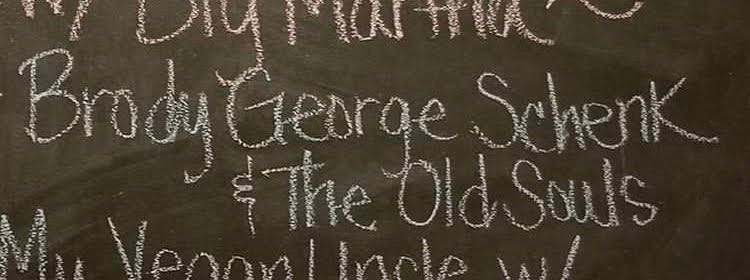 w/ Big Martha
Brody George Schenk
& The Old Souls
My Vegan Uncle w/